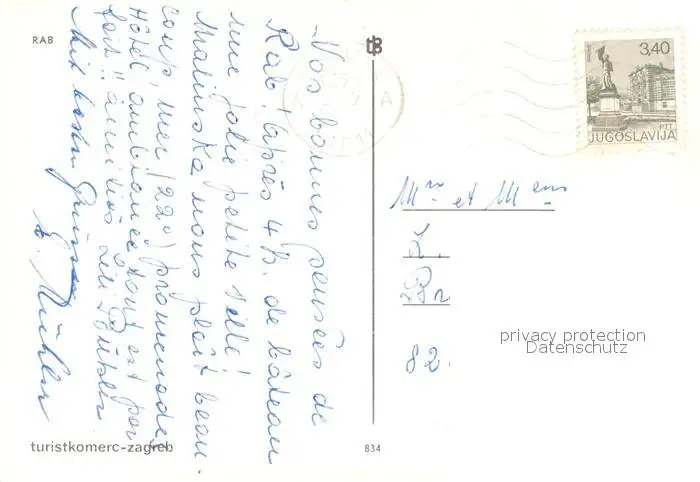 RAB
Vos bonnes pensées de
Rab! Après 4 h. de bâteau
une jolie petite ville!
Malinska nous plaît beau.
coup, mer (22°) promenades,
Hôtel ambiance tout est par
fait!! amitiés
Mit besten Grüssen
turistkomerc-zagreb
834
3,40
PTT
JUGOSLAVIJA
Mr et Mem
L.
Br
82.
privacy protection
Datenschutz